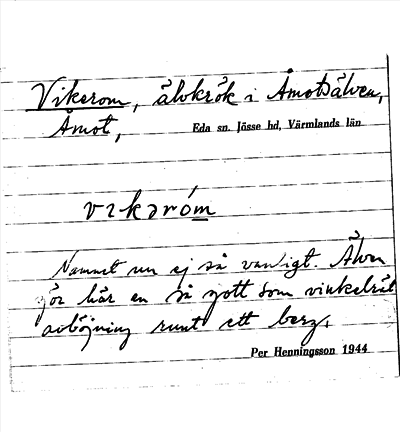 Vikerom, älvkrök i Åmotsälven,
Åmot, Eda sn. Jösse hd, Värmlands län
vikəróm
Namnet nu ej så vanligt. Älven
gör här en så gott som vinkelrät
avböjning runt ett berg.
Per Henningsson 1944